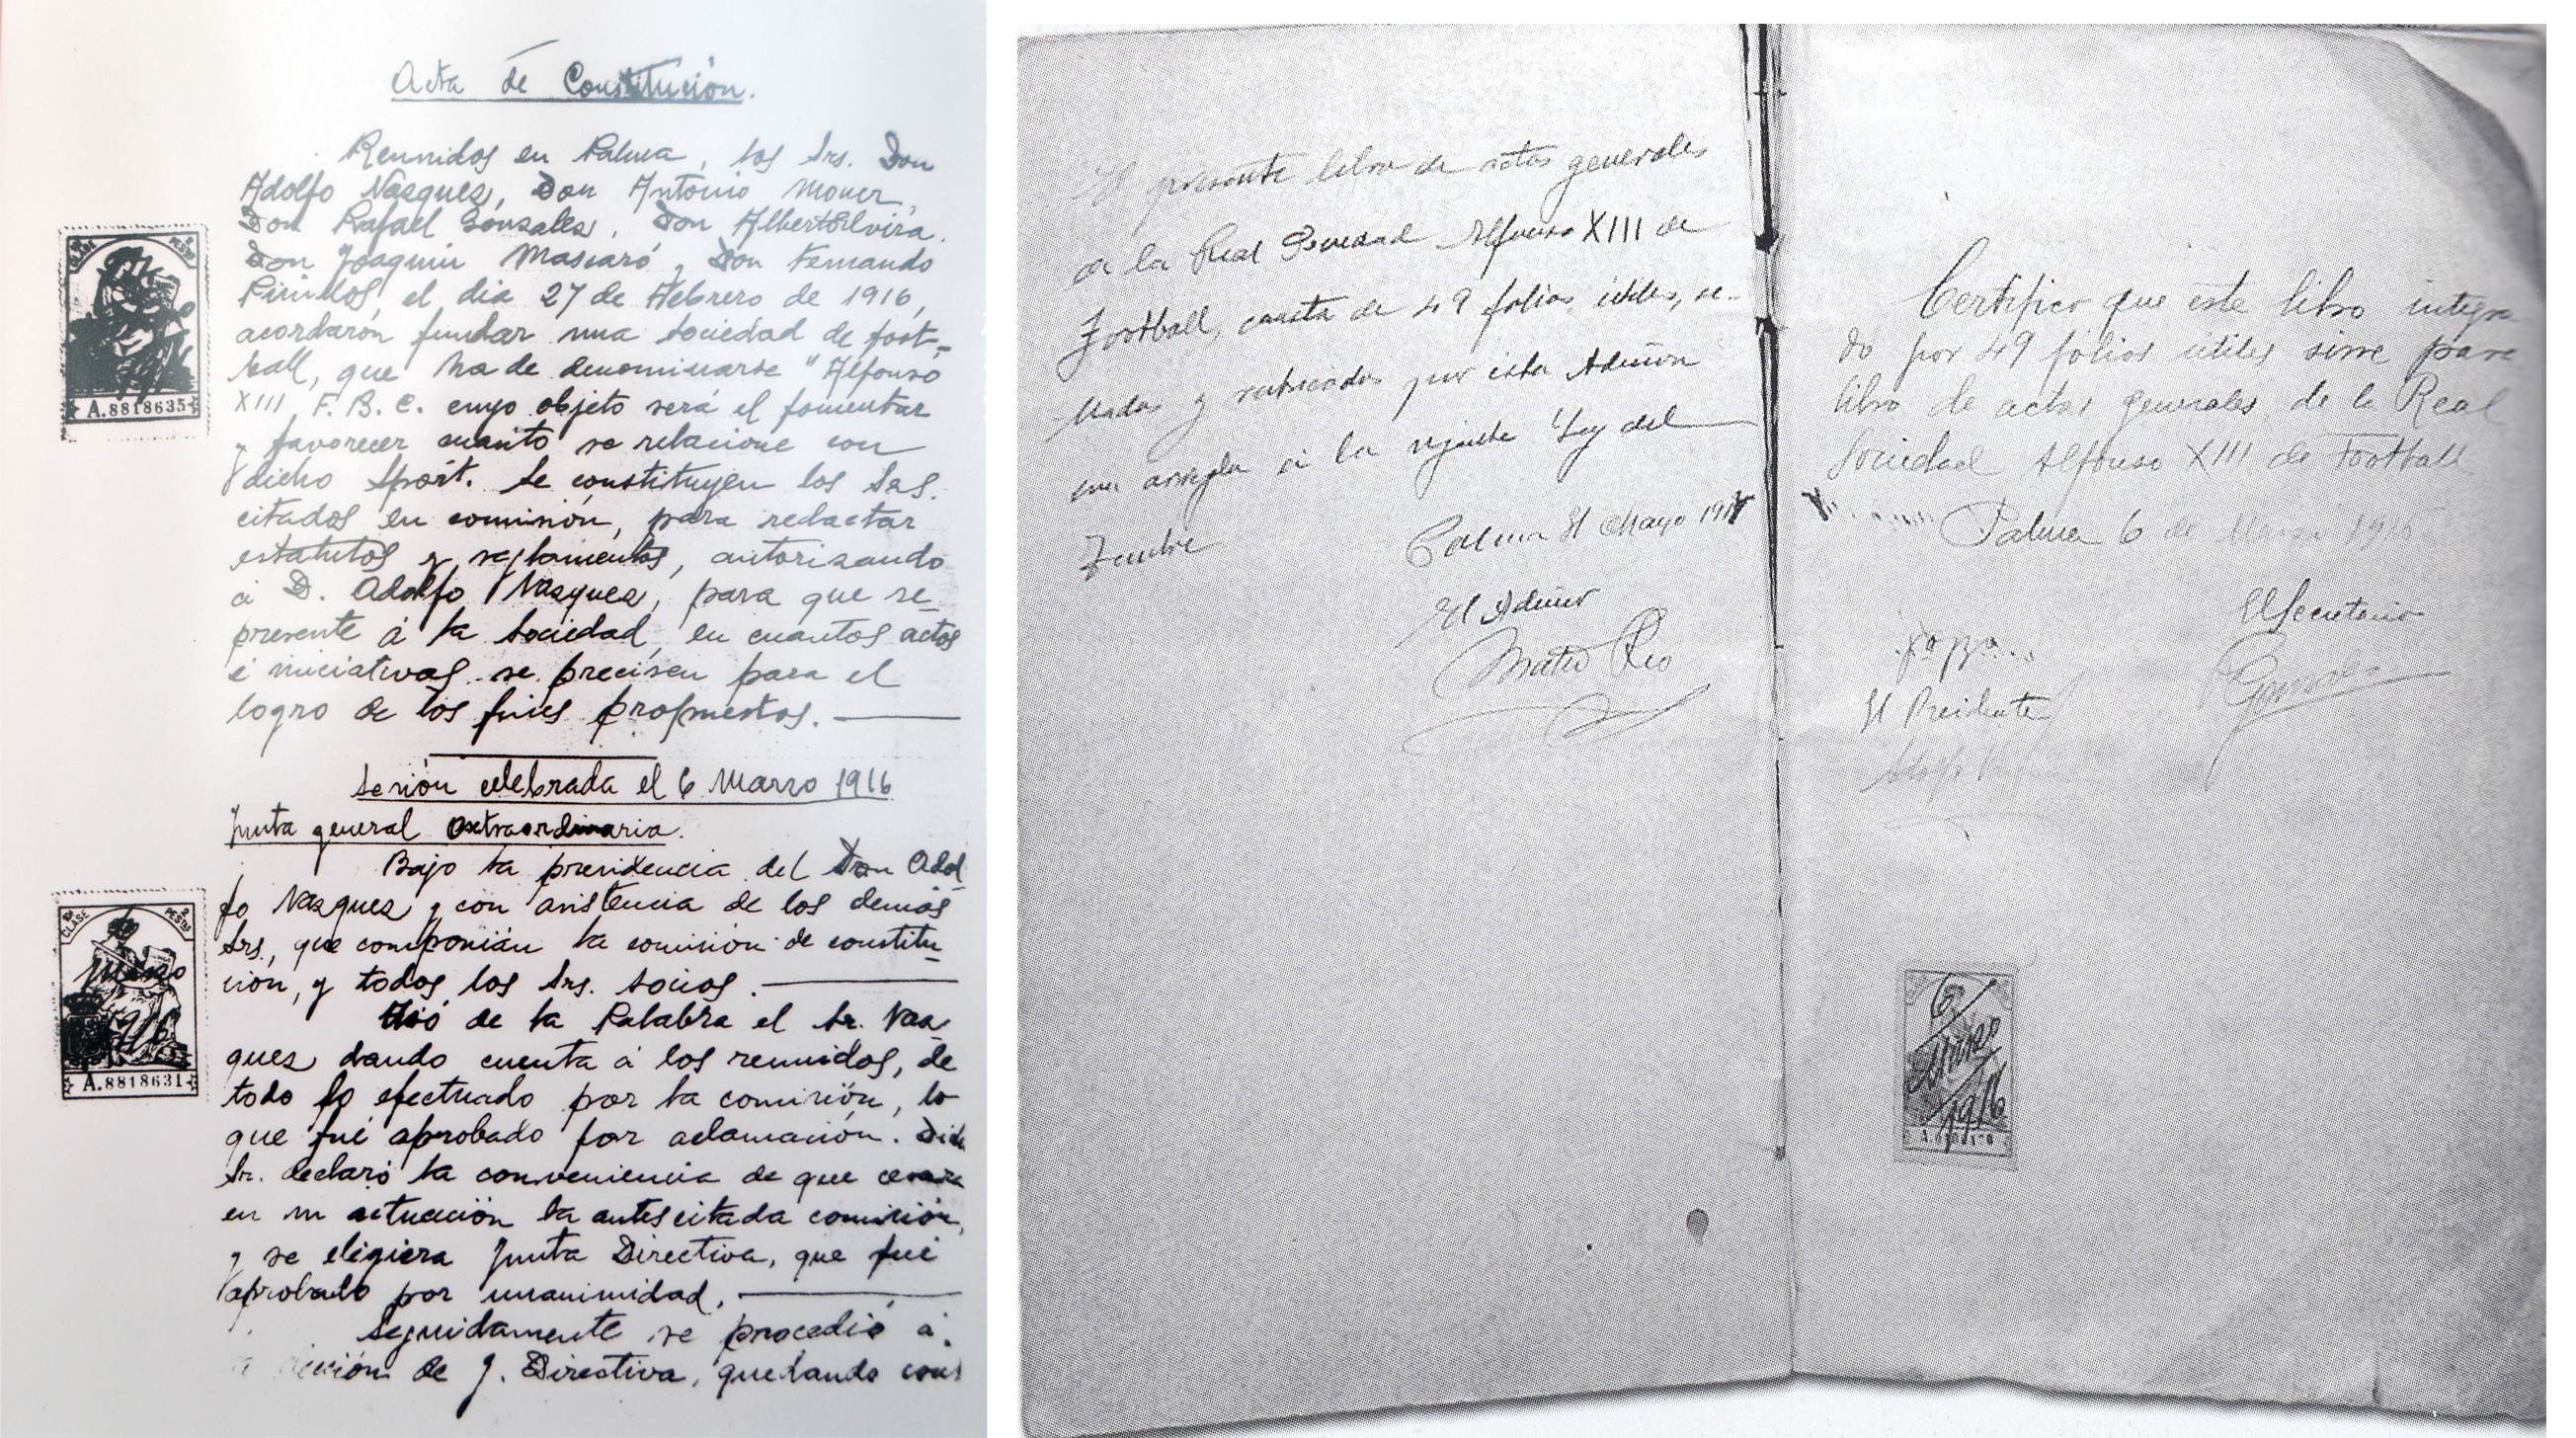 Acta de Constitución.
Reunidos en Palma, los Srs. Don
Adolfo Vasques, Don Antonio Moner,
Don Rafael Gonsales, Don Alberto Elvira.
Don Joaquin Mascaró, Don Fernando
Pirulos, el dia 27 de Febrero de 1916,
acordarón fundar una sociedad de foot-
ball, que ha de denominarse "Alfonso
XIII, F. B. C. cuyo objeto será el fomentar
y favorecer cuanto se relacione con
dicho Sport. Se constituyen los Srs.
citados en comisión, para redactar
estatutos y reglamentos, autorizando
á D. Adolfo Vasques, para que re-
presente á la Sociedad, en cuantos actos
é iniciativas se precisen para el
logro de los fines propuestos.
Sesión celebrada el 6 Marzo 1916
Junta general extraordinaria.
Bajo la presidencia del Don Adol
fo Vasques y con asistencia de los demás
Srs., que componián la comisión de constitu-
ción, y todos los Srs. socios.
Usó de la Palabra el Sr. Vas
ques dando cuenta á los reunidos, de
todo lo efectuado por la comisión, lo
que fué aprobado por aclamación. Dicho
Sr. declaró la conveniencia de que cesara
en su actuación la antes citada comisión,
y se eligiera Junta Directiva, que fué
aprobado por unanimidad.
Seguidamente se procedió á
elección de J. Directiva, quedando cons
CLASE 2 PESTAS
A.8818635
CLASE 2 PESTAS
Marzo
A.8818631
El presente libro de actas generales
de la Real Sociedad Alfonso XIII de
Football, consta de 49 folios útiles, se-
llados y rubricados por esta Admón
con arreglo á la vigente Ley del
Timbre
Palma 31 Mayo 191
El Admor
Mateo Rio
Certifico que este libro integra
do por 49 folios utiles sirve para
libro de actas generales de la Real
Sociedad Alfonso XIII de Football
Palma 6 de Marzo 1916
El Secretario
Vº Bº
El Presidente
Adolfo
6
Marzo
1916